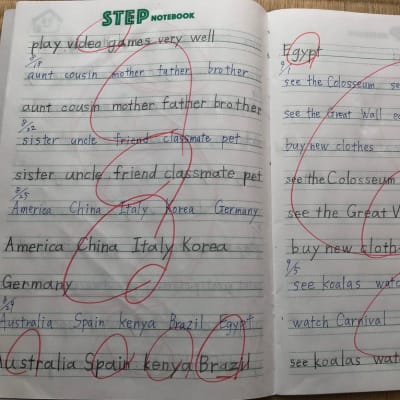 STEP NOTEBOOK
play video games very well
8/18
aunt cousin mother father brother
aunt cousin mother father brother
8/22
sister uncle friend classmate pet
sister uncle friend classmate pet
8/25
America China Italy Korea Germany
America China Italy Korea
Germany
8/29
Australia Spain kenya Brazil Egypt
Australia Spain kenya Brazil
Egypt
9/1
see the Colosseum
see the Great Wall
buy new clothes
see the Colosseum
see the Great
buy new cloth
9/5
see koalas
watch Carnival
see koalas